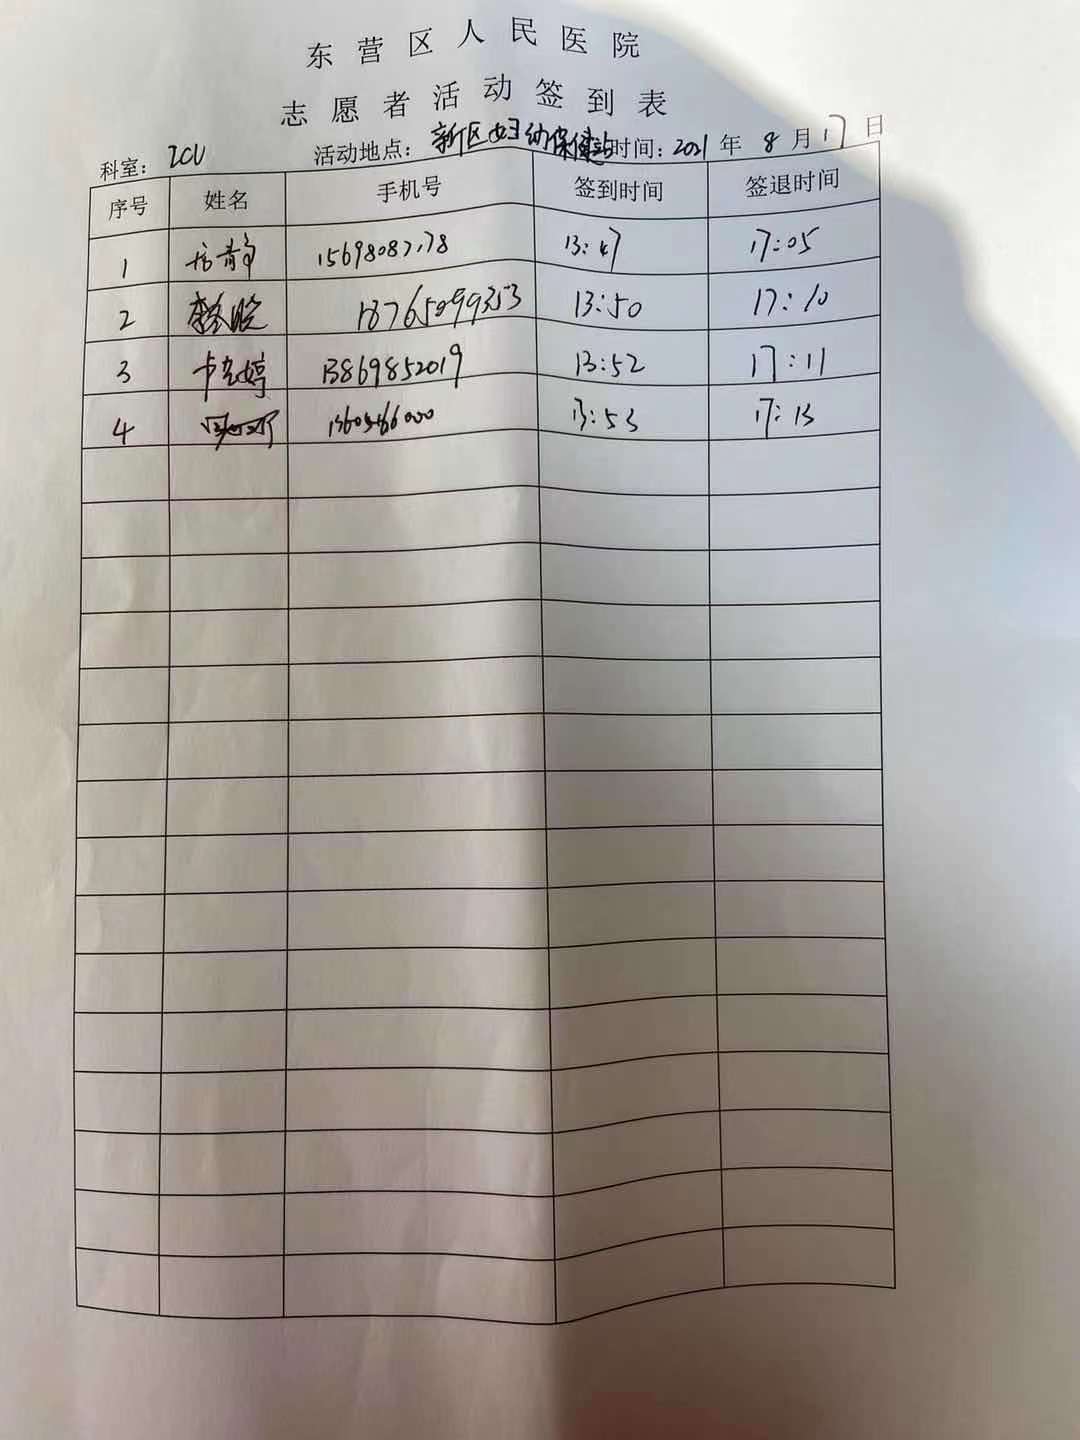 东营区人民医院
志愿者活动签到表
科室：ICU 活动地点：新区妇幼保健站 时间：2021年8月17日
序号 姓名 手机号 签到时间 签退时间
1 13:47 17:05
2 18765099353 13:50 17:10
3 13869852019 13:52 17:11
4 13:53 17:13